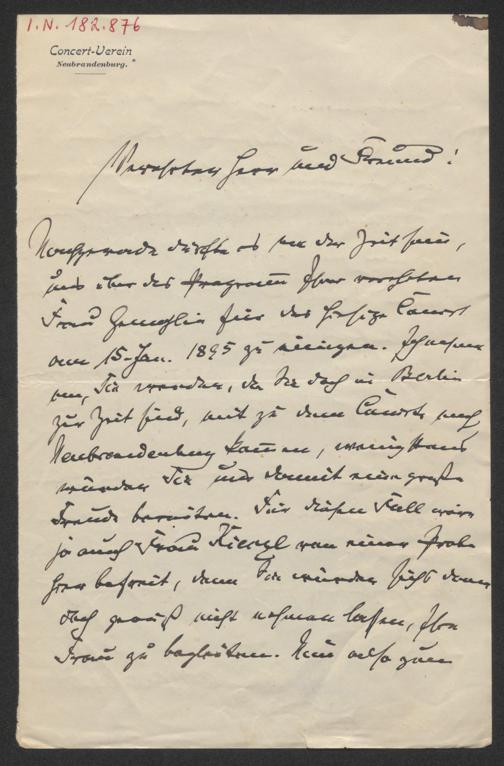 I.N. 182.876
Concert-Verein
Neubrandenburg.
Verehrter Herr und Freund!
Nachgerade dürfte es an der Zeit sein,
uns über das Programm Ihrer verehrten
Frau Gemahlin für das hiesige Concert
am 15. Jan. 1895 zu einigen. Ich nehme
an, Sie werden, da Sie doch in Berlin
zur Zeit sind, mit zu dem Concerte nach
Neubrandenburg kommen, wenigstens
würden Sie uns damit eine große
Freude bereiten. Für diesen Fall wäre
ja auch Frau Kienzl von einer Probe
hier befreit, denn Sie würden sich's dann
doch gewiß nicht nehmen lassen, Ihre
Frau zu begleiten. Nun also zum